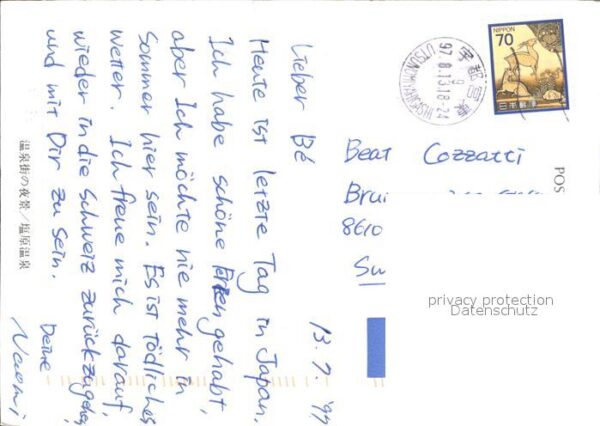 Lieber Bé
13. 7. '97
Heute ist letzte Tag in Japan.
Ich habe schöne Ferien gehabt,
aber Ich möchte nie mehr in
Sommer hier sein. Es ist tödliches
Wetter. Ich freue mich darauf,
wieder in die Schweiz zurückzugehen,
und mit Dir zu sein.
Deine
Naomi
温泉街の夜景/塩原温泉
NIPPON
70
日本郵便
宇都宮東
97. 8. 13 18-24
UTSUNOMIYA HIGASHI
POS
Beat Cozzatti
8610
privacy protection
Datenschutz